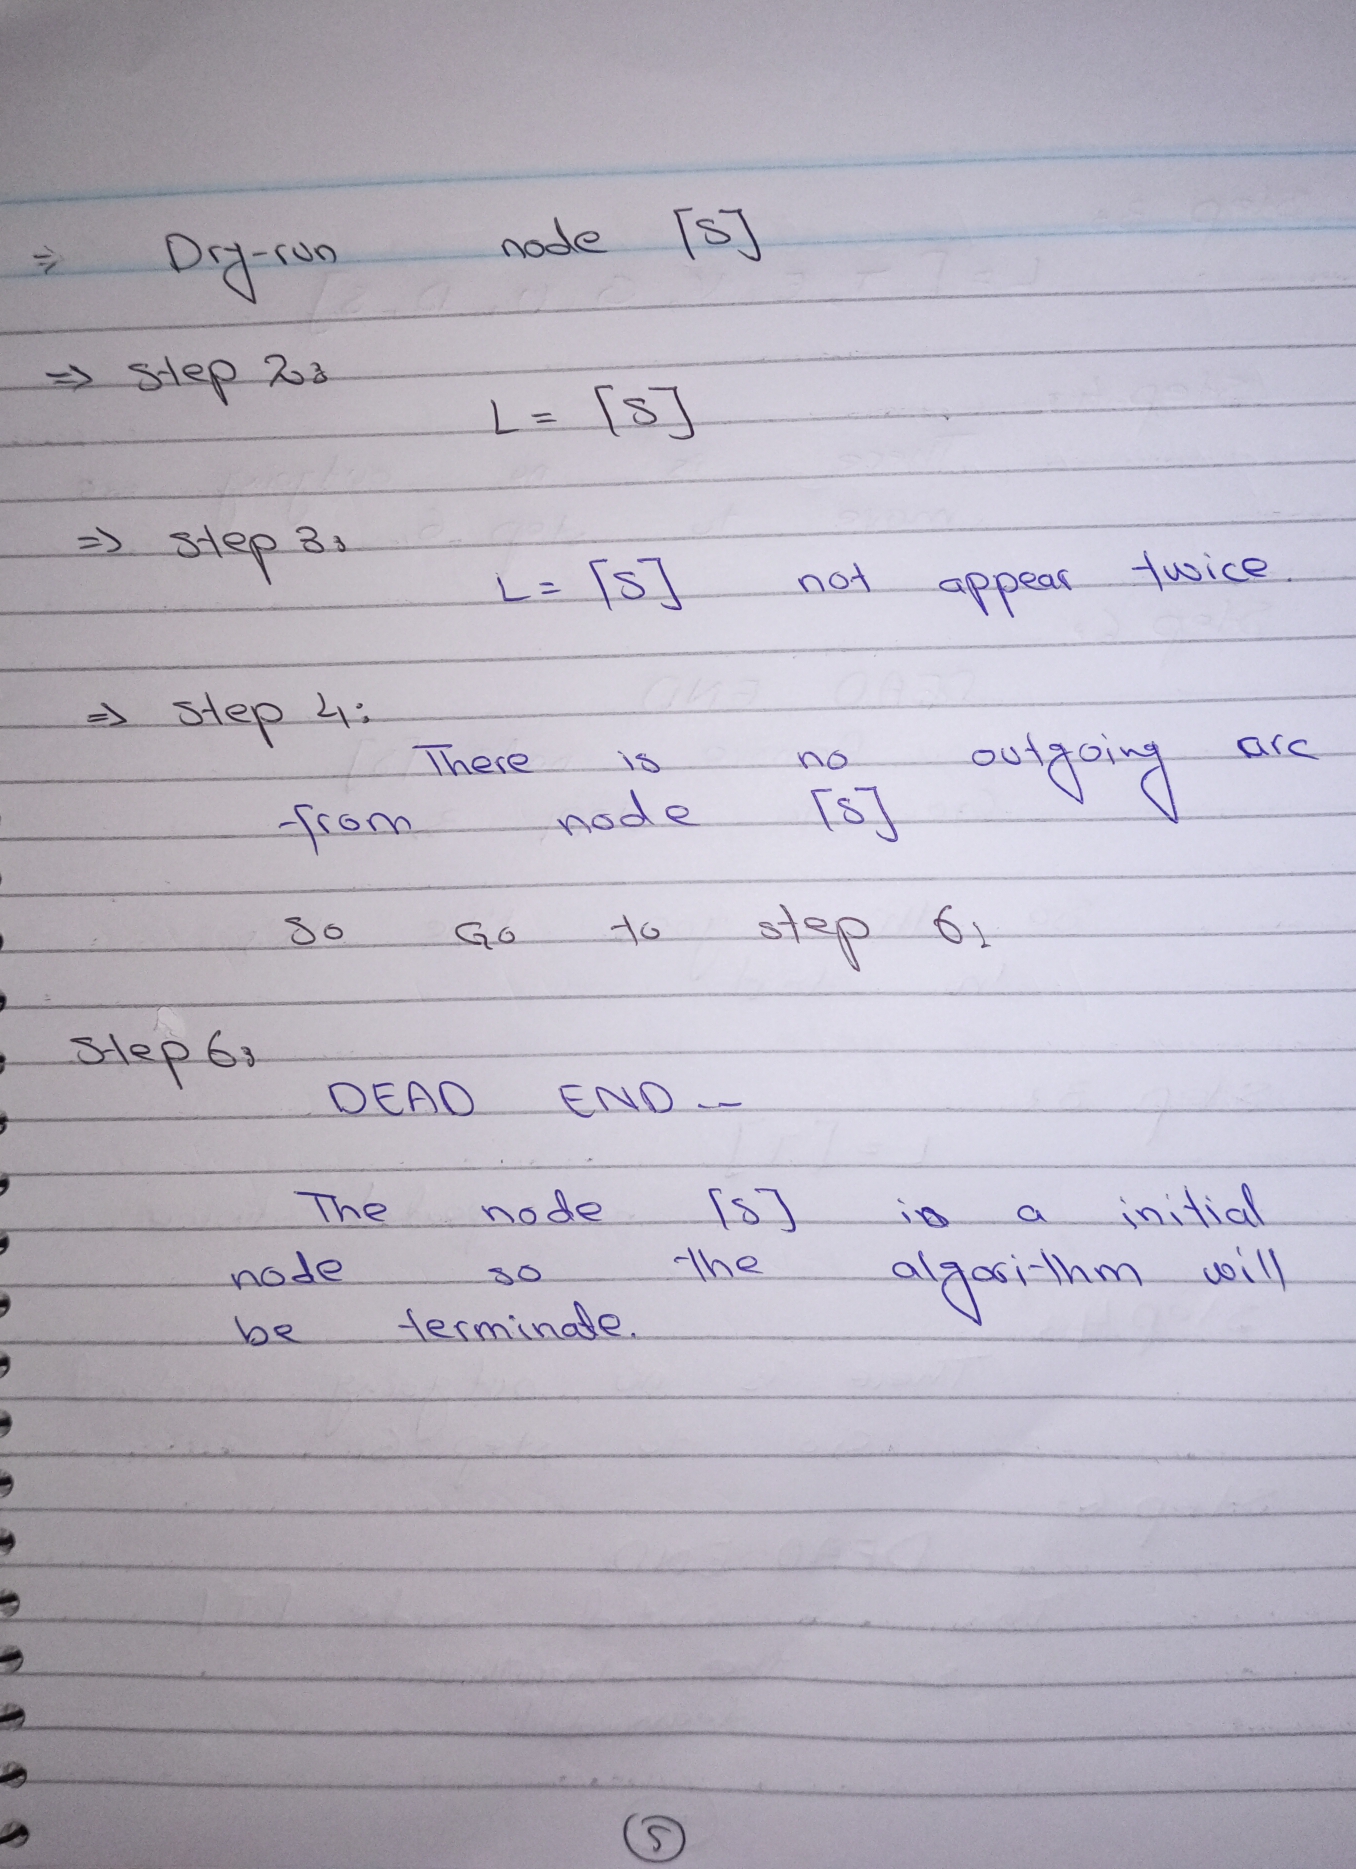 ⇒ Dry-run node [S]
⇒ step 2:
L = [S]
⇒ step 3:
L = [S] not appear twice.
⇒ step 4:
There is no outgoing arc
from node [S]
so Go to step 6:
Step 6:
DEAD END --
The node [S] is a initial
node so the algorithm will
be terminate.
5